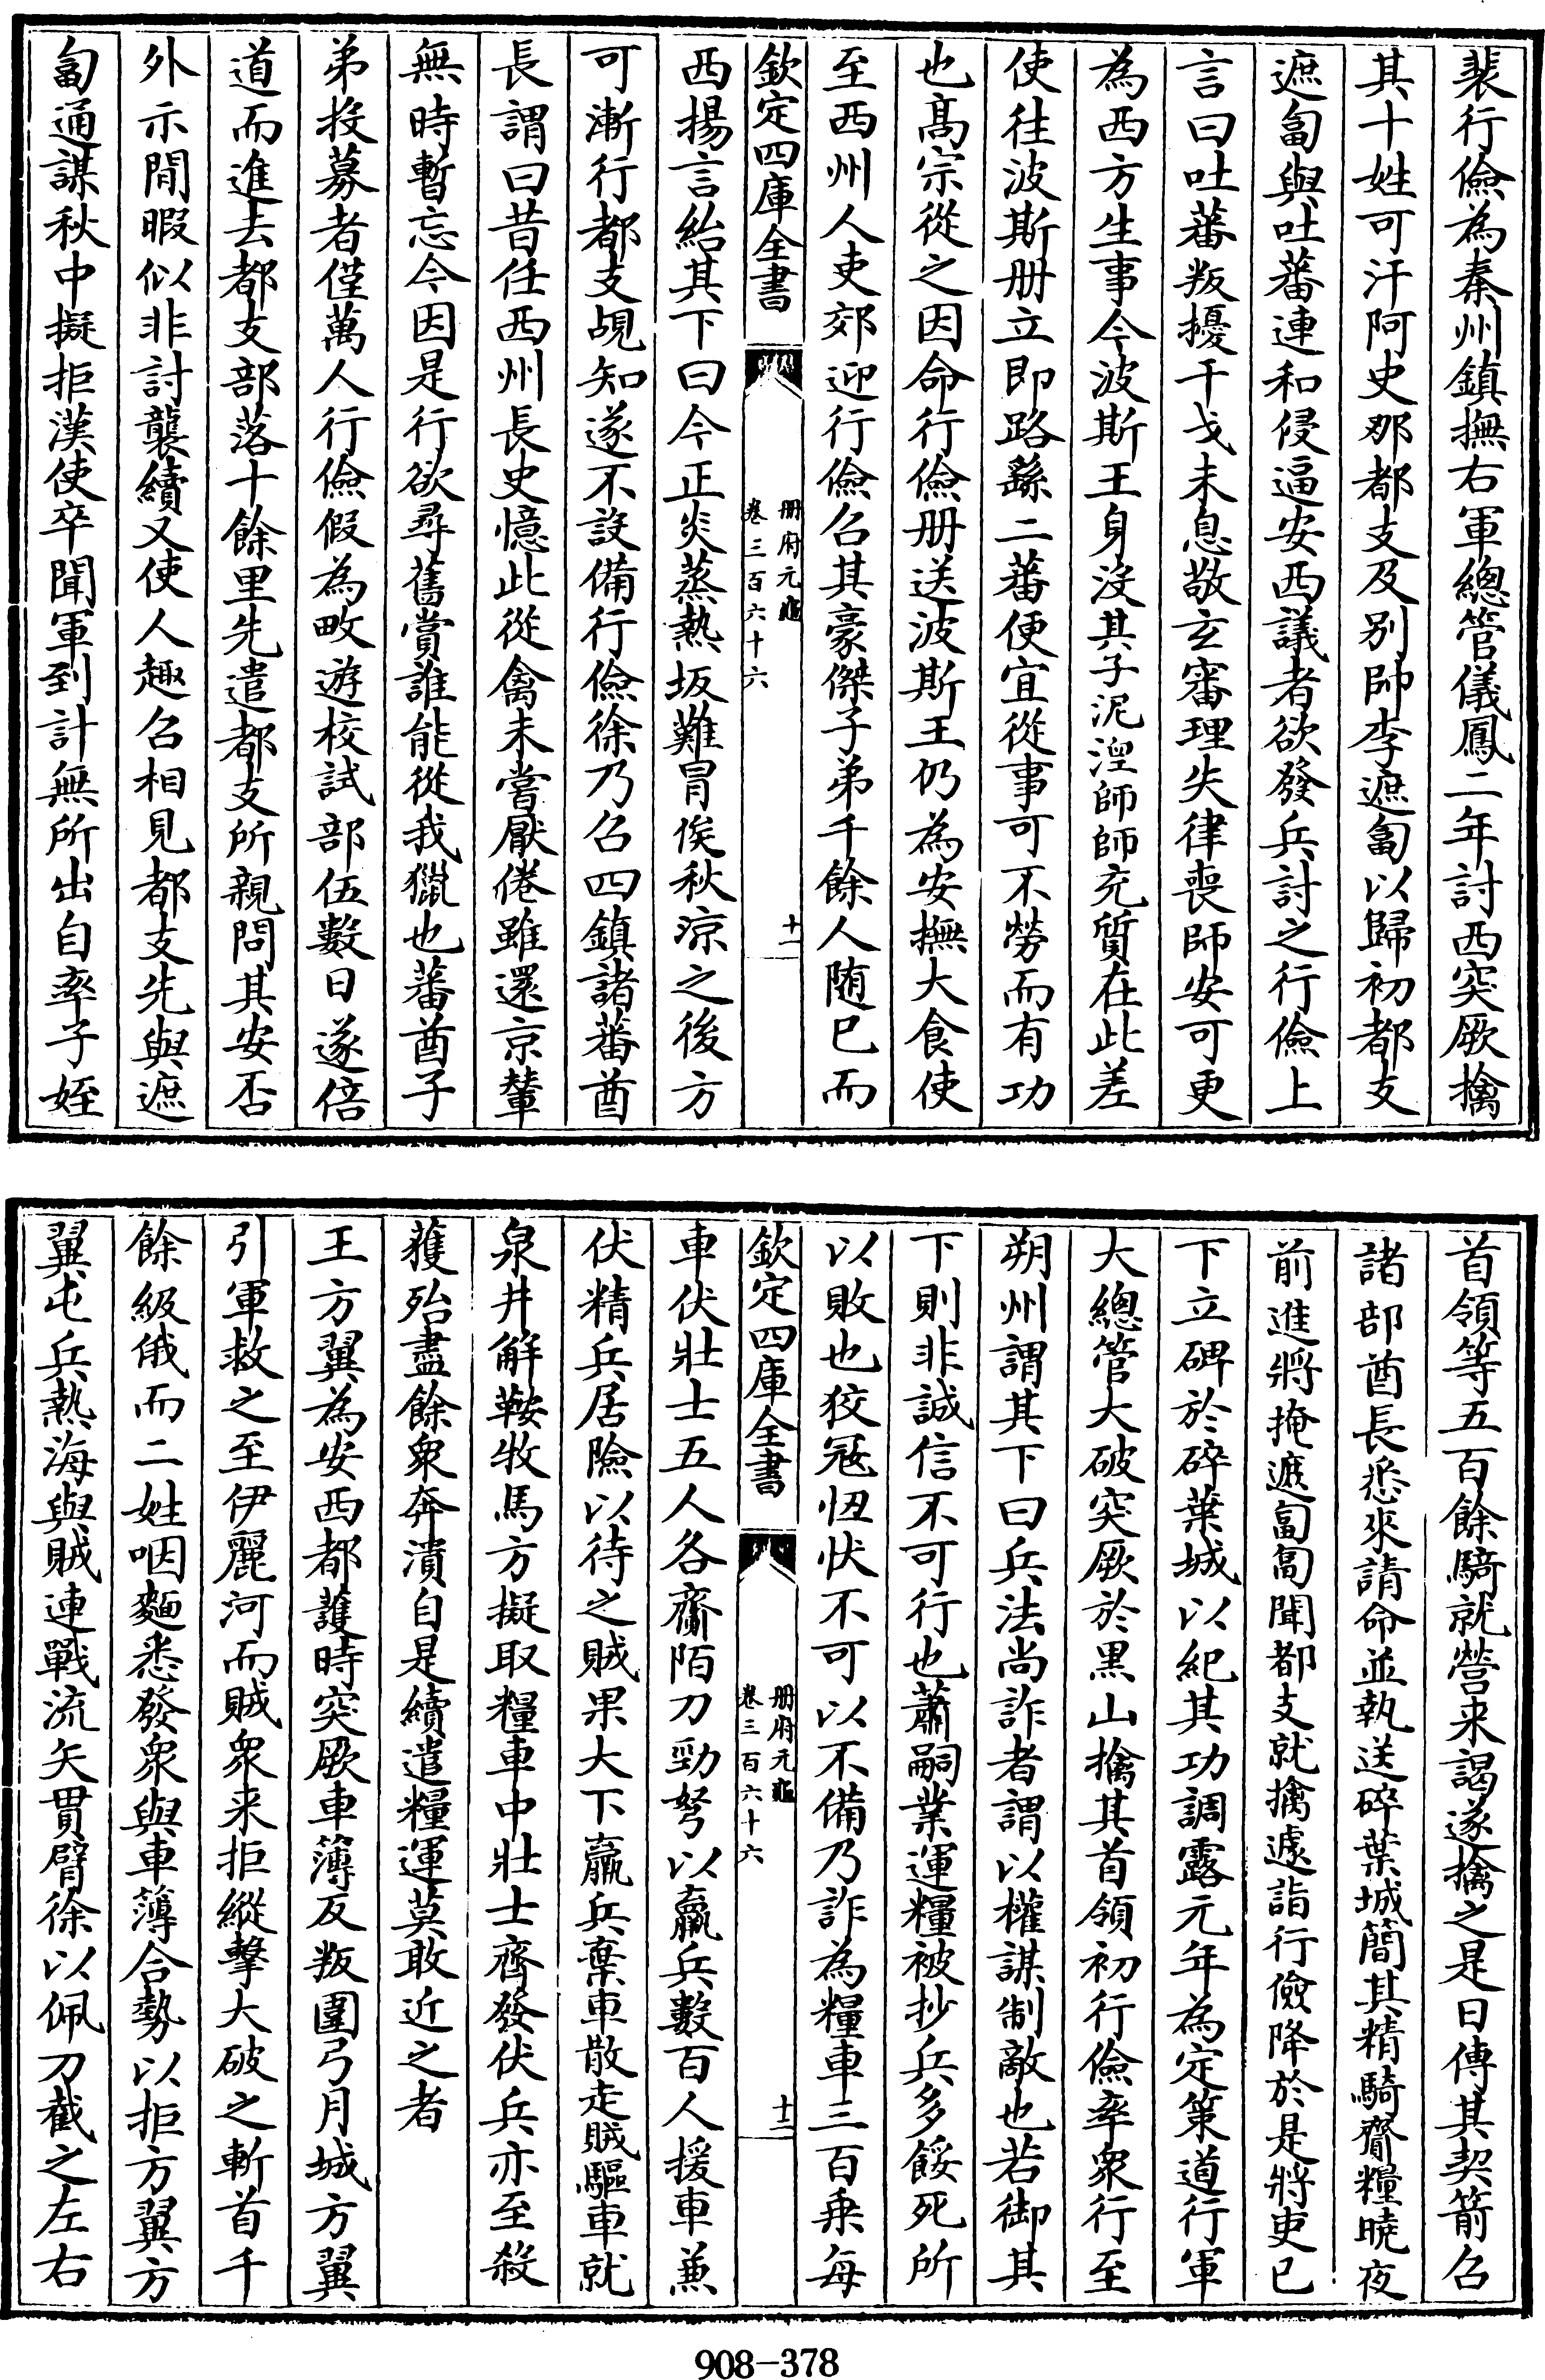 裴行儉為秦州鎮撫右軍總管儀鳳二年討西突厥擒
其十姓可汗阿史那都支及别帥李遮匐以歸初都支
遮匐與吐蕃連和侵逼安西議者欲發兵討之行儉上
言曰吐蕃叛擾干戈未息敬玄審理失律喪師安可更
為西方生事今波斯王身沒其子泥湼師師充質在此差
使往波斯册立即路繇二蕃便宜從事可不勞而有功
也髙宗從之因命行儉册送波斯王仍為安撫大食使
至西州人吏郊迎行儉召其豪傑子弟千餘人随已而
欽定四庫全書
册府元龜
卷三百六十六
十一
西揚言紿其下曰今正炎蒸熱坂難冒俟秋涼之後方
可漸行都支覘知遂不設備行儉徐乃召四鎮諸蕃酋
長謂曰昔任西州長史憶此從禽未嘗厭倦雖還京輦
無時暫忘今因是行欲尋舊賞誰能從我獵也蕃酋子
弟投募者僅萬人行儉假為畋遊校試部伍數日遂倍
道而進去都支部落十餘里先遣都支所親問其安否
外示閒暇似非討襲續又使人趣召相見都支先與遮
匐通謀秋中擬拒漢使卒聞軍到計無所出自率子姪
首領等五百餘騎就營来謁遂擒之是日傳其契箭召
諸部酋長悉來請命並執送碎葉城簡其精騎齎糧曉夜
前進將掩遮匐匐聞都支就擒遽詣行儉降於是將吏已
下立碑於碎葉城以紀其功調露元年為定策道行軍
大總管大破突厥於黑山擒其首領初行儉率衆行至
朔州謂其下曰兵法尚詐者謂以權謀制敵也若御其
下則非誠信不可行也蕭嗣業運糧被抄兵多餒死所
以敗也狡冦忸忕不可以不備乃詐為糧車三百乘每
欽定四庫全書
册府元龜
卷三百六十六
十二
車伏壯士五人各齎陌刀勁弩以羸兵數百人援車兼
伏精兵居險以待之賊果大下羸兵棄車散走賊驅車就
泉井解鞍牧馬方擬取糧車中壯士齊發伏兵亦至殺
獲殆盡餘衆奔潰自是續遣糧運莫敢近之者
王方翼為安西都護時突厥車簿反叛圍弓月城方翼
引軍救之至伊麗河而賊衆来拒縱擊大破之斬首千
餘級俄而二姓咽麵悉發衆與車簿合勢以拒方翼方
翼屯兵熱海與賊連戰流矢貫臂徐以佩刀截之左右
908-378